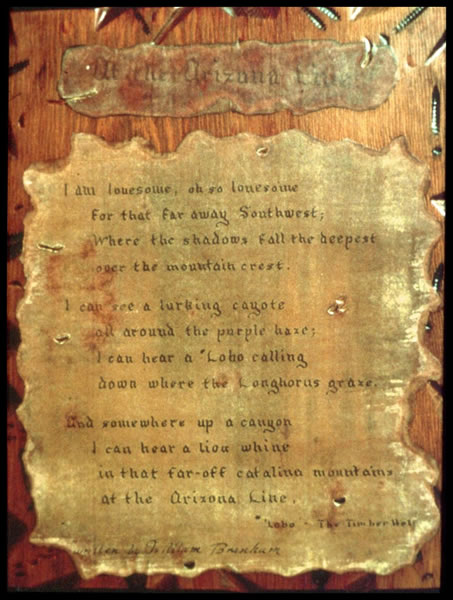 At the Arizona Line
I am lonesome, oh so lonesome
For that far away Southwest;
Where the shadows fall the deepest
over the mountain crest.
I can see a lurking cayote
all around the purple haze;
I can hear a "Lobo calling
down where the Longhorns graze.
And somewhere up a canyon
I can hear a lion whine
in that far-off catalina mountains
at the Arizona Line.
"Lobo - The Timber Wolf
written by William